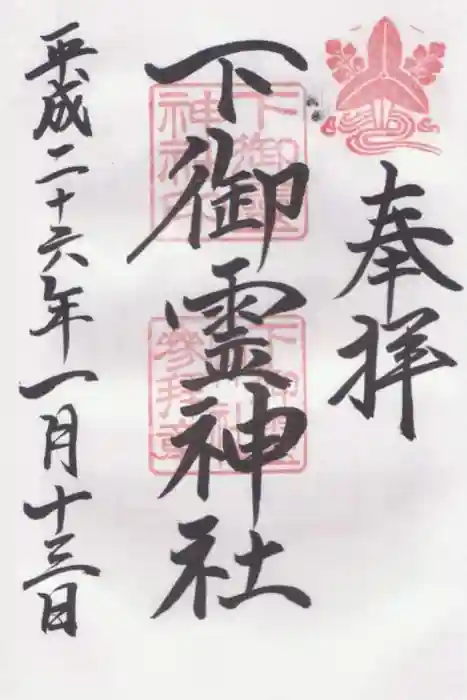 奉拝
下御霊神社
平成二十六年一月十三日
下御霊
神社印
下御霊
参拝章